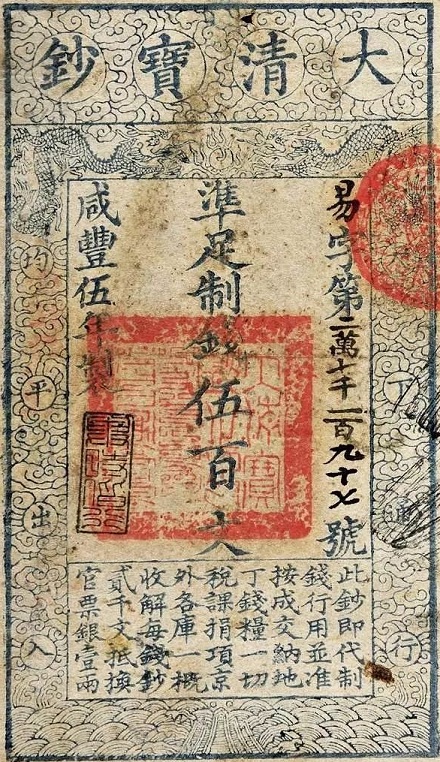 大清寶鈔
下通行
易字第一萬七千一百九十七號
準足制錢伍百文
咸豐伍年製
均平出入
此鈔即代制
錢行用並准
按成交納地
丁錢糧一切
稅課捐項京
外各庫一概
收解每錢鈔
貳千文抵換
官票銀壹兩